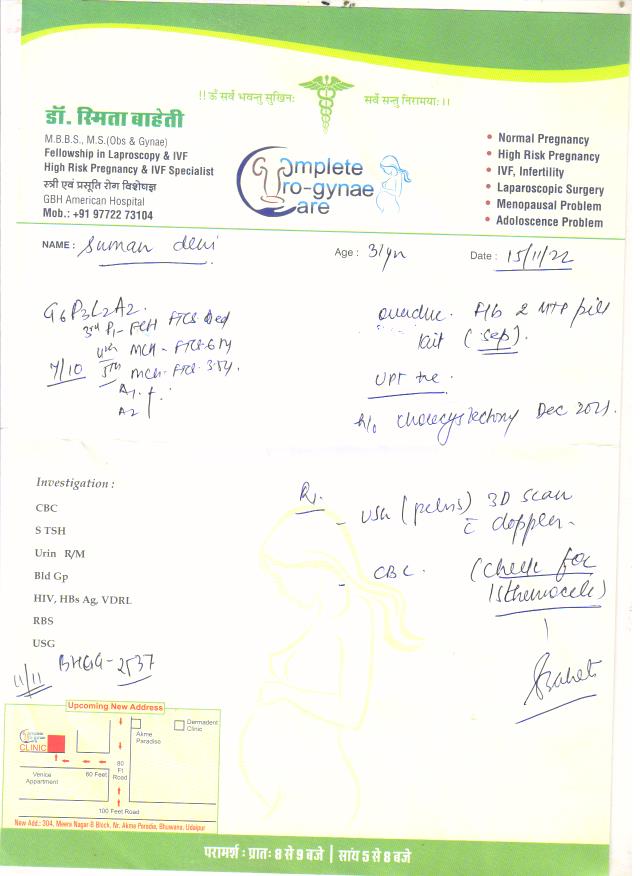 !! ॐ सर्वे भवन्तु सुखिनः सर्वे सन्तु निरामयाः ।।
डॉ. स्मिता बाहेती
M.B.B.S., M.S.(Obs & Gynae)
Fellowship in Laproscopy & IVF
High Risk Pregnancy & IVF Specialist
स्त्री एवं प्रसूति रोग विशेषज्ञ
GBH American Hospital
Mob.: +91 97722 73104
Complete
Uro-gynae
Care
• Normal Pregnancy
• High Risk Pregnancy
• IVF, Infertility
• Laparoscopic Surgery
• Menopausal Problem
• Adoloscence Problem
NAME : Suman devi Age : 31yrs Date : 15/11/22
G6P3L2A2.
3rd P1- FCH FTCS Died
4th MCH - FTCS-
7/10 5th MCH- FTCS-
A1
A2
overdue. 2 MTP pill
kit (Sep).
UPT +ve.
H/o Cholecystectomy Dec 2021.
Investigation :
CBC
S TSH
Urin R/M
Bld Gp
HIV, HBs Ag, VDRL
RBS
USG
11/11 BHCG-2537
Rx.
- USG (pelvis) 3D scan
c̄ doppler-
- CBC. (Check for
Isthmocele)
Upcoming New Address
Complete
Uro-gynae
Care
CLINIC
Akme
Paradiso
Dermadent
Clinic
Venice
Appartment
60 Feet
80
Ft
Road
100 Feet Road
New Add.: 304, Meera Nagar-B Block, Nr. Akme Parodio, Bhuwana, Udaipur
परामर्श : प्रातः 8 से 9 बजे | सांय 5 से 8 बजे